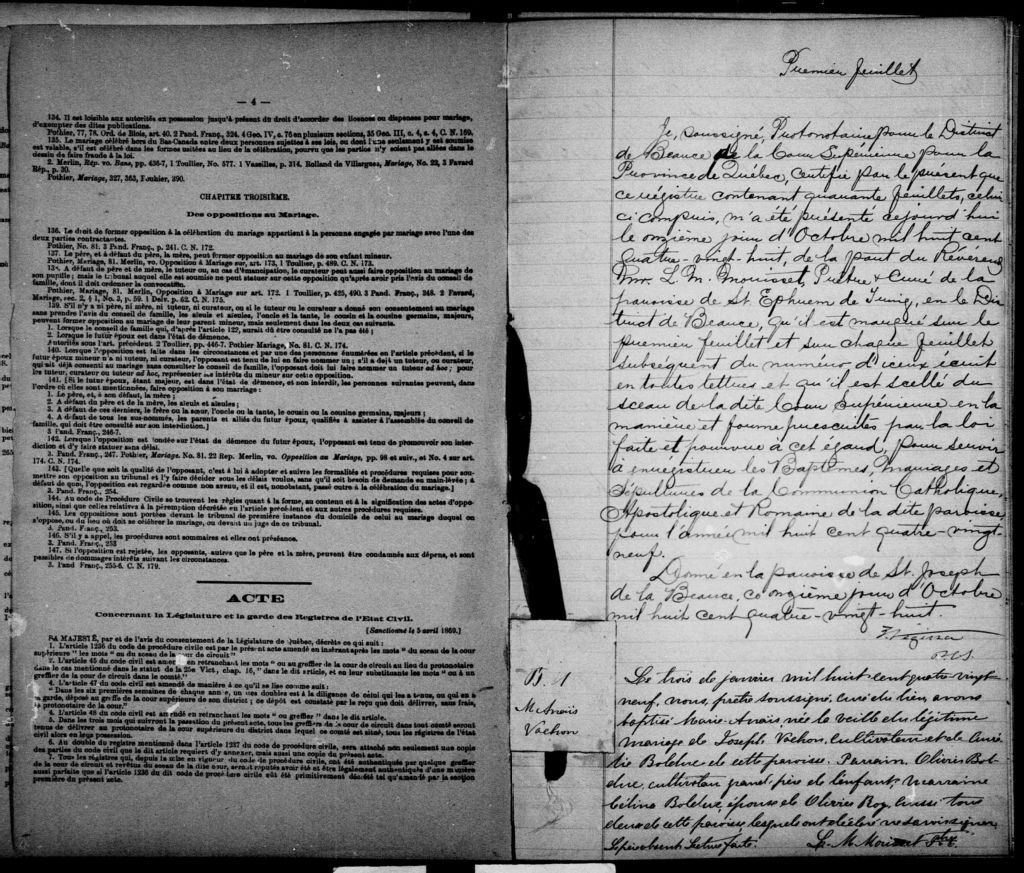 — 4 —
134. Il est loisible aux autorités en possession jusqu'à présent du droit d'accorder des licences ou dispenses pour mariage,
d'exempter des dites publications.
Pothier, 77, 78. Ord. de Blois, art. 40. 2 Pand. Franç., 324. 4 Geo. IV, c. 76 en plusieurs sections, 35 Geo. III, c. 4, s. 4, C. N. 169.
135. Le mariage célébré hors du Bas-Canada entre deux personnes sujettes à ses lois, ou dont l'une seulement y est soumise
est valable, s'il est célébré dans les formes usitées au lieu de la célébration, pourvu que les parties n'y soient pas allées dans le
dessein de faire fraude à la loi.
2. Merlin, Rép. vo. Bans, pp. 436-7, 1 Toullier, No. 577. 1 Vasseilles, p. 314. Rolland de Villargues, Mariage, No. 22, 3 Favard
Rép., p. 30.
Pothier, Mariage, 327, 363, Pothier, 390.
CHAPITRE TROISIÈME.
Des oppositions au Mariage.
136. Le droit de former opposition à la célébration du mariage appartient à la personne engagée par mariage avec l'une des
deux parties contractantes.
Pothier, No. 81. 3 Pand. Franç., p. 241. C. N. 172.
137. Le père, et à défaut du père, la mère, peut former opposition au mariage de son enfant mineur.
Pothier, Mariage, 81. Merlin, vo. Opposition à Mariage sur art. 173, 1 Toullier, p. 489. C. N. 173.
138. A défaut de père et de mère, le tuteur ou, au cas d'émancipation, le curateur peut aussi faire opposition au mariage de
son pupille; mais le tribunal auquel elle est soumise ne peut statuer sur cette opposition qu'après avoir pris l'avis du conseil de
famille, dont il doit ordonner la convocation.
Pothier, Mariage, 81. Merlin, Opposition à Mariage sur art. 172. 1 Toullier, p. 425, 490. 3 Pand. Franç., 248. 2 Favard,
Mariage, sec. 2, § 1, No. 3, p. 59. 1 Delv. p. 62. C. N. 175.
139. S'il n'y a ni père, ni mère, ni tuteur, ni curateur, ou si le tuteur ou le curateur a donné son consentement au mariage
sans prendre l'avis du conseil de famille, les aïeuls et aïeules, l'oncle et la tante, le cousin et la cousine germains, majeurs,
peuvent former opposition au mariage de leur parent mineur, mais seulement dans les deux cas suivants.
1. Lorsque le conseil de famille qui, d'après l'article 122, aurait dû être consulté ne l'a pas été;
2. Lorsque le futur époux est dans l'état de démence.
Autorités sous l'art. précédent. 2 Toullier, pp. 446-7. Pothier Mariage, No. 81. C. N. 174.
140. Lorsque l'opposition est faite dans les circonstances et par une des personnes énumérées en l'article précédent, si le
futur époux mineur n'a ni tuteur, ni curateur, l'opposant est tenu de lui en faire nommer un; s'il a déjà un tuteur, ou curateur,
qui ait déjà consenti au mariage sans consulter le conseil de famille, l'opposant doit lui faire nommer un tuteur ad hoc; pour
les tuteur, curateur ou tuteur ad hoc, représenter les intérêts du mineur sur cette opposition.
141. [Si le futur époux, étant majeur, est dans l'état de démence, et non interdit, les personnes suivantes peuvent, dans
l'ordre où elles sont mentionnées, faire opposition à son mariage:
1. Le père, et, à son défaut, la mère;
2. A défaut du père et de la mère, les aïeuls et aïeules;
3. A défaut de ces derniers, le frère ou la sœur, l'oncle ou la tante, le cousin ou la cousine germains, majeurs;
4. A défaut de tous les sus-nommés, les parents et alliés du futur époux, qualifiés à assister à l'assemblée du conseil de
famille, qui doit être consulté sur son interdiction.]
3 Pand. Franç., 246-7.
142. Lorsque l'opposition est fondée sur l'état de démence du futur époux, l'opposant est tenu de promouvoir son inter-
diction et d'y faire statuer sans délai.
3. Pand. Franç., 247. Pothier, Mariage. No. 81. 22 Rep. Merlin, vo. Opposition au Mariage, pp. 98 et suiv., et No. 4 sur art.
174. C. N. 174.
143. [Quelle que soit la qualité de l'opposant, c'est à lui à adopter et suivre les formalités et procédures requises pour sou-
mettre son opposition au tribunal et l'y faire décider sous les délais voulus, sans qu'il soit besoin de demande en main-levée; à
défaut de quoi, l'opposition est regardée comme non avenue, et il est, nonobstant, passé outre à la célébration du mariage.]
3. Pand. Franç., 254.
144. Au code de Procédure Civile se trouvent les règles quant à la forme, au contenu et à la signification des actes d'oppo-
sition, ainsi que celles relatives à la péremption décrétée en l'article précédent et aux autres procédures requises.
145. Les oppositions sont portées devant le tribunal de première instance du domicile de celui au mariage duquel on
s'oppose, ou du lieu où doit se célébrer le mariage, ou devant un juge de ce tribunal.
3. Pand. Franç., 253.
146. S'il y a appel, les procédures sont sommaires et elles ont préséance.
3. Pand. Franç., 253
147. Si l'opposition est rejetée, les opposants, autres que le père et la mère, peuvent être condamnés aux dépens, et sont
passibles de dommages intérêts suivant les circonstances.
3. Pand Franç., 255-6. C. N. 179.
ACTE
Concernant la Législature et la garde des Registres de l'Etat Civil.
[Sanctionné le 5 avril 1869.]
SA MAJESTÉ, par et de l'avis du consentement de la Législature de Québec, décrète ce qui suit:
1. L'article 1236 du code de procédure civile est par le présent acte amendé en insérant après les mots "du sceau de la cour
supérieure" les mots "ou du sceau de la cour de circuit"
2. L'article 45 du code civil est amendé en retranchant les mots "ou au greffier de la cour de circuit au lieu du protonotaire
dans le cas mentionné dans le statut de la 25e Vict, chap. 16," dans le dis article, et en leur substituant les mots "ou à un
greffier de la cour de circuit dans le comté."
4. L'article 47 du code civil est amendé de manière à ce qu'il se lise comme suit:
"Dans les six premières semaines de chaque année, un ces doubles est à la diligence de celui qui les a tenus, ou qui en a
la garde, déposé au greffe de la cour supérieure de son district; ce dépôt est constaté par le reçu que doit délivrer, sans frais,
le protonotaire de la cour."
4. L'article 48 du code civil est amendé en retranchant les mots "ou greffier" dans le dit article.
5. Dans les trois mois qui suivront la passation du présent acte, tous les greffiers de la cour de circuit dans tout comté seront
tenus de délivrer au protonotaire de la cour supérieure du district dans lequel ce comté est situé, tous les registres de l'état
civil alors en leur possession.
6. Au double du registre mentionné dans l'article 1237 du code de procédure civile, sera attaché non seulement une copie
des parties du code civil que le dit article requiert d'y annexer, mais aussi une copie du présent acte.
7. Tous les registres qui, depuis la mise en vigueur du code de procédure civile, ont été authentiqués par quelque greffier
de la cour de circuit et revêtus du sceau de la dite cour, seront réputés avoir été et être légalement authentiqués d'une manière
aussi parfaite que si l'article 1236 du dit code de procédure civile eût été primitivement décrété tel qu'amendé par la section
première du présent acte.
Premier feuillet
Je, soussigné, Protonotaire pour le District
de Beauce de la Cour Supérieure pour la
Province de Québec, certifie par le présent que
ce régistre contenant quarante feuillets, celui
ci compris, m'a été présenté cejourd'hui
le onzième jour d'Octobre mil huit cent
quatre-vingt-huit, de la part du Révérend
Mr. L. M. Mouisset, Prêtre & Curé de la
paroisse de St. Ephrem de Tring, en le Dis
trict de Beauce, qu'il est marqué sur le
premier feuillet et sur chaque feuillet
subséquent du numéro d'iceux écrit
en toutes lettres et qu'il est scellé du
sceau de la dite Cour supérieure en la
manière et forme prescrites par la loi
faite et pourvue à cet égard, pour servir
à enregistrer les Baptêmes, Mariages et
Sépultures de la Communion Catholique,
Apostolique et Romaine de la dite paroisse
pour l'année mil huit cent quatre-vingt-
neuf.
Donné en la paroisse de St. Joseph
de la Beauce, ce onzième jour d'Octobre
mil huit cent quatre-vingt-huit.
P.C.S.
B. 1
M. Anaïs
Vachon
Le trois de janvier mil huit cent quatre vingt
neuf, nous, prêtre soussigné, curé du lieu, avons
baptisé Marie Anaïs, née la veille du légitime
mariage de Joseph Vachon, cultivateur et de Aure
lie Bolduc de cette paroisse. Parrain, Olivier Bol
duc, cultivateur grand-père de l'enfant, marraine
Célina Bolduc, épouse de Olivier Roy, aussi tous
deux de cette paroisse lesquels ont déclaré ne savoir signer.
Le père absent. Lecture faite. L. M. Mouisset Ptre